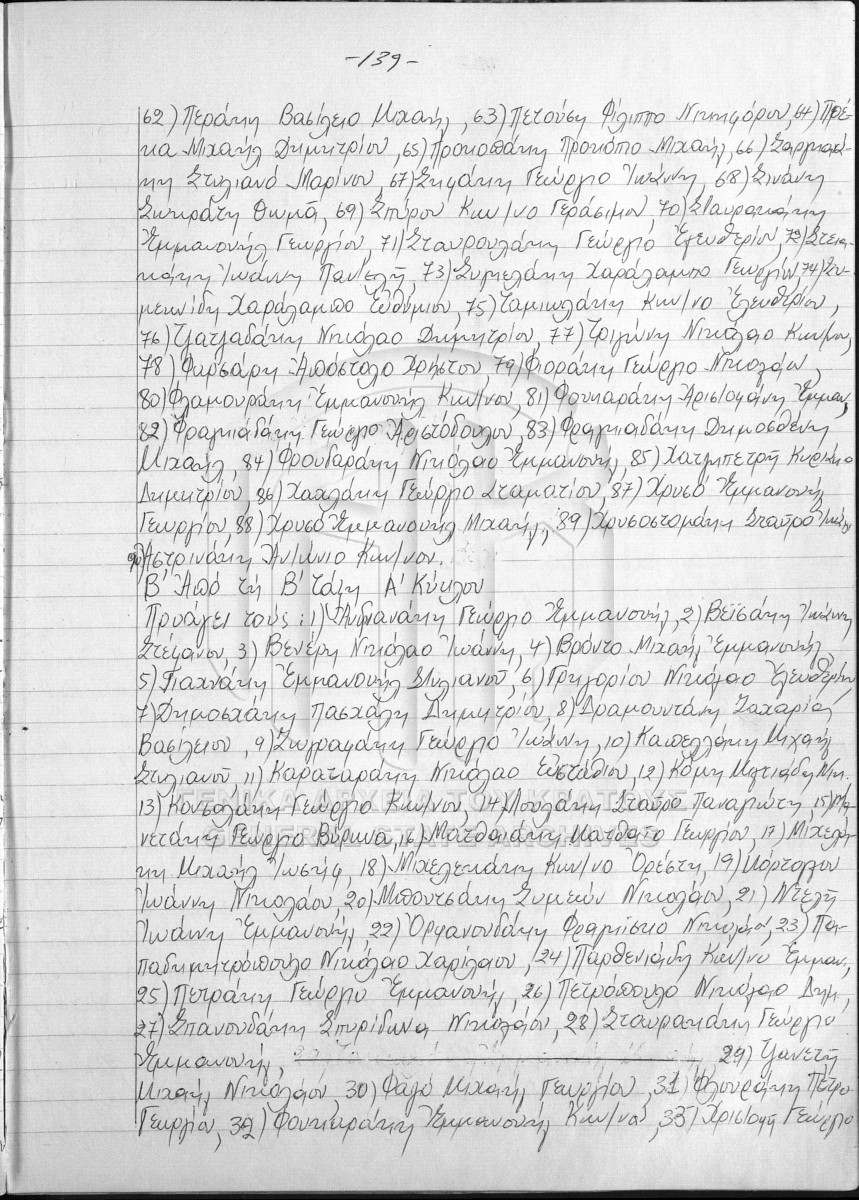 -139-
62) Περάκη Βασίλειο Μιχαήλ, 63) Πετούση Φίλιππο Νικηφόρου, 64) Πρέ-
κα Μιχαήλ Δημητρίου, 65) Προκοπάκη Προκόπιο Μιχαήλ, 66) Σαργιακά-
κη Στυλιανό Μαρίνου, 67) Σηφάκη Γεώργιο Ἰωάννη, 68) Σινάνη
Σωκράτη Θωμᾶ, 69) Σπύρου Κων/νο Γεράσιμου, 70) Σταυρακάκη
Ἐμμανουήλ Γεωργίου, 71) Σταυρουλάκη Γεώργιο Ἐλευθερίου, 72) Στεια-
κάκη Ἰωάννη Παντελῆ, 73) Συμελάκη Χαράλαμπο Γεωργίου, 74) Συ-
μεωνίδη Χαράλαμπο Εὐθύμιου, 75) Ταμιωλάκη Κων/νο Ἐλευθερίου,
76) Τζατζαδάκη Νικόλαο Δημητρίου, 77) Τριγώνη Νικόλαο Κων/νου,
78) Φαρσάρη Ἀπόστολο Χρήστου 79) Φιοράκη Γεώργιο Νικολάου,
80) Φλαμουράκη Ἐμμανουήλ Κων/νου 81) Φουκαράκη Ἀριστοφάνη Ἐμμαν,
82) Φραγκιαδάκη Γεώργιο Ἀριστόδουλου, 83) Φραγκιαδάκη Δημοσθένη
Μιχαήλ, 84) Φρουδαράκη Νικόλαο Ἐμμανουήλ, 85) Χατζηπετρῆ Κυριάκο
Δημητρίου, 86) Χαχλάκη Γεώργιο Σταματίου, 87) Χρυσό Ἐμμανουήλ
Γεωργίου, 88) Χρυσό Ἐμμανουήλ Μιχαήλ, 89) Χρυσοστομάκη Σταῦρο Ἰωάν
90) Ἀστρινάκη Ἀντώνιο Κων/νου.
Β' Ἀπό τή Β' τάξη Α' Κύκλου
Προάγει τούς: 1) Ἀνδιανάκη Γεώργιο Ἐμμανουήλ, 2) Βεϊσάκη Ἰωάννη
Στέφανου, 3) Βενέρη Νικόλαο Ἰωάννη, 4) Βρόντο Μιχαήλ Ἐμμανουήλ,
5) Γιαχνάκη Ἐμμανουήλ Στυλιανοῦ, 6) Γρηγορίου Νικόλαο Ἐλευθερίου
7) Δημοσχάκη Πασχάλη Δημητρίου, 8) Δραμουντάνη Ζαχαρία
Βασίλειου, 9) Ζωγραφάκη Γεώργιο Ἰωάννη, 10) Καπελλάκη Μιχαήλ
Στυλιανοῦ 11) Καραταράκη Νικόλαο Εὐστάθιου, 12) Κόμη Μιλτιάδη Νικ.
13) Κοντολάκη Γεώργιο Κων/νου, 14) Λουλάκη Σταῦρο Παναγιώτη 15) Μα-
νετάκη Γεώργιο Βύρωνα, 16) Ματθαιάκη Ματθαῖο Γεωργίου, 17) Μιχελά-
κη Μιχαήλ Ἰωσήφ, 18) Μιχελεκάκη Κων/νο Ὀρέστη, 19) Μόρτογλου
Ἰωάννη Νικολάου 20) Μπουτσάκη Συμεών Νικολάου, 21) Ντελῆ
Ἰωάννη Ἐμμανουήλ 22) Ὀρφανουδάκη Φραγκίσκο Νικολάου, 23) Πα-
παδημητρόπουλο Νικόλαο Χαρίλαου, 24) Παρθενιάδη Κων/νο Ἐμμαν,
25) Πετράκη Γεώργιο Ἐμμανουήλ, 26) Πετρόπουλο Νικόλαο Δημ,
27) Σπανουδάκη Σπυρίδωνα Νικολάου, 28) Σταυρακάκη Γεώργιο
Ἐμμανουήλ, 29) Τζανετῆ
Μιχαήλ Νικολάου, 30) Φαγό Μιχαήλ Γεωργίου, 31) Φλουράκη Πέτρο
Γεωργίου, 32) Φουκαράκη Ἐμμανουήλ Κων/νου, 33) Χριστοφῆ Γεώργιο
ΓΕΝΙΚΑ ΑΡΧΕΙΑ ΤΟΥ ΚΡΑΤΟΥΣ
GENERAL STATE ARCHIVES